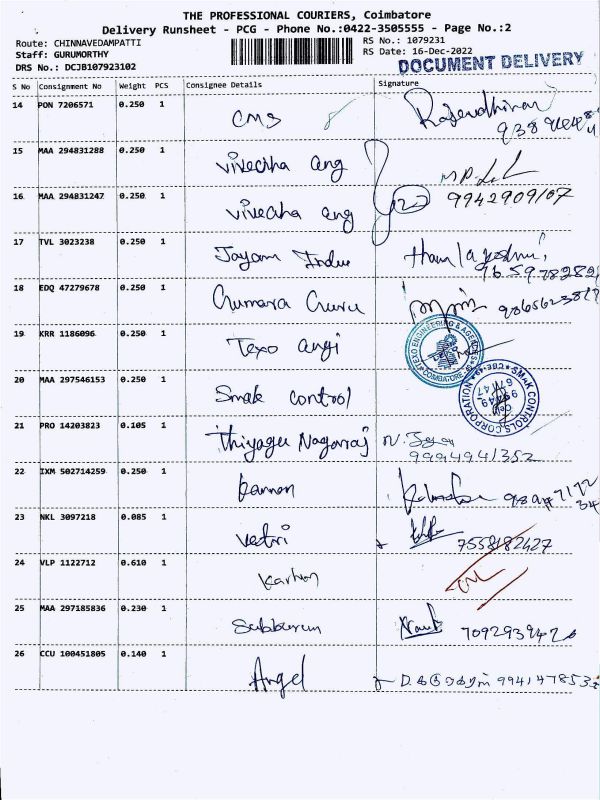 THE PROFESSIONAL COURIERS, Coimbatore
Delivery Runsheet - PCG - Phone No.:0422-3505555 - Page No.:2
Route: CHINNAVEDAMPATTI
Staff: GURUMORTHY
DRS No.: DCJB107923102
RS No.: 1079231
RS Date: 16-Dec-2022
DOCUMENT DELIVERY
S No Consignment No Weight PCS Consignee Details Signature
14 PON 7206571 0.250 1 CMS
15 MAA 294831288 0.250 1 Vivekha ang
16 MAA 294831247 0.250 1 Vivekha ang 9942909107
17 TVL 3023238 0.250 1 Jayam Indu
18 EDQ 47279678 0.250 1 Cumara Curu
19 KRR 1186096 0.250 1 Texo angi
TEXO ENGINEERING & AGENCIES COIMBATORE
20 MAA 297546153 0.250 1 Smak control
SMAK CONTROLS CORPORATION
21 PRO 14203823 0.105 1 Thiyagu Nagarraj
9994941352
22 IXM 502714259 0.250 1 Kannan
23 NKL 3097218 0.085 1 Vetri 7558182427
24 VLP 1122712 0.610 1
25 MAA 297185836 0.230 1
26 CCU 100451805 0.140 1 Angel